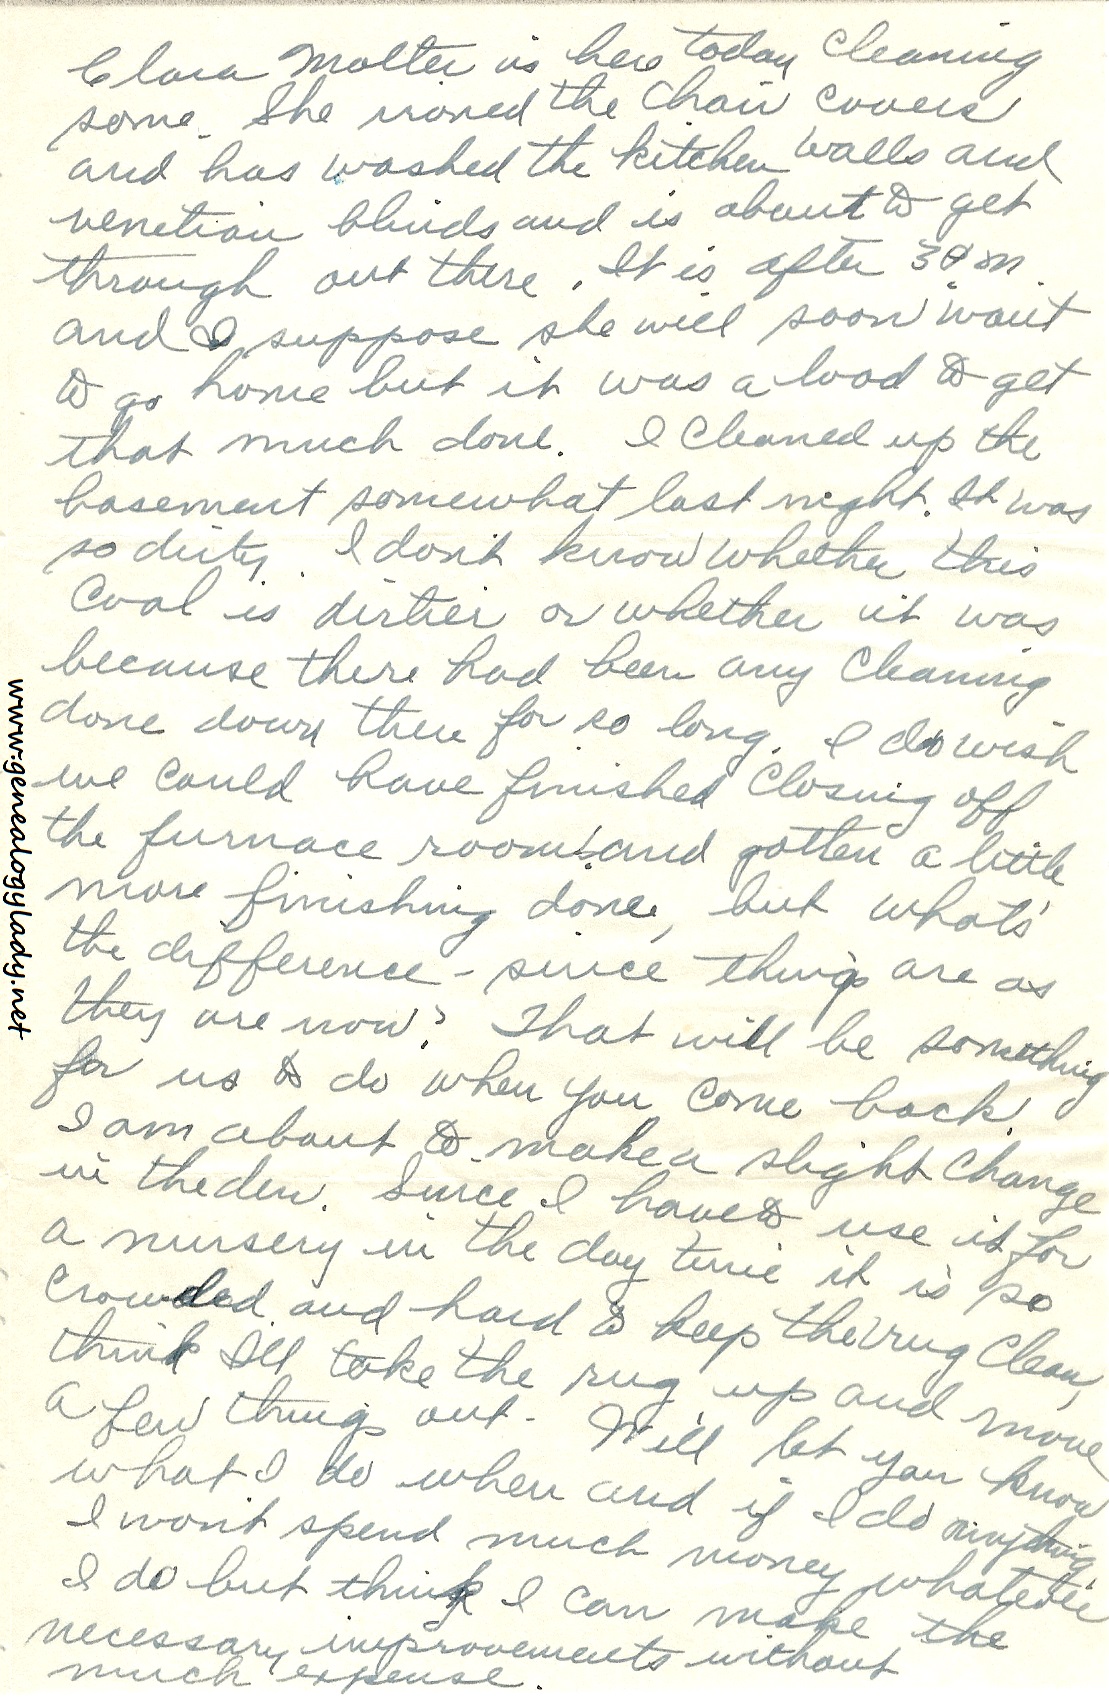 Clara Molter is here today cleaning
some. She ironed the chair covers
and has washed the kitchen walls and
venetian blinds and is about to get
through out there. It is after 3 P m
and I suppose she will soon want
to go home but it was a load to get
that much done. I cleaned up the
basement somewhat last night. It was
so dirty. I don't know whether this
coal is dirtier or whether it was
because there had been any cleaning
done down there for so long. I do wish
we could have finished closing off
the furnace room and gotten a little
more finishing done, but what's
the difference - since things are as
they are now? That will be something
for us to do when you come back.
I am about to make a slight change
in the den. Since I have to use it for
a nursery in the day time it is so
crowded and hard to keep the rug clean,
think I'll take the rug up and move
a few things out - Will let you know
what I do when and if I do anything.
I won't spend much money whatever
I do but think I can make the
necessary improvements without
much expense.
www.genealogylady.net